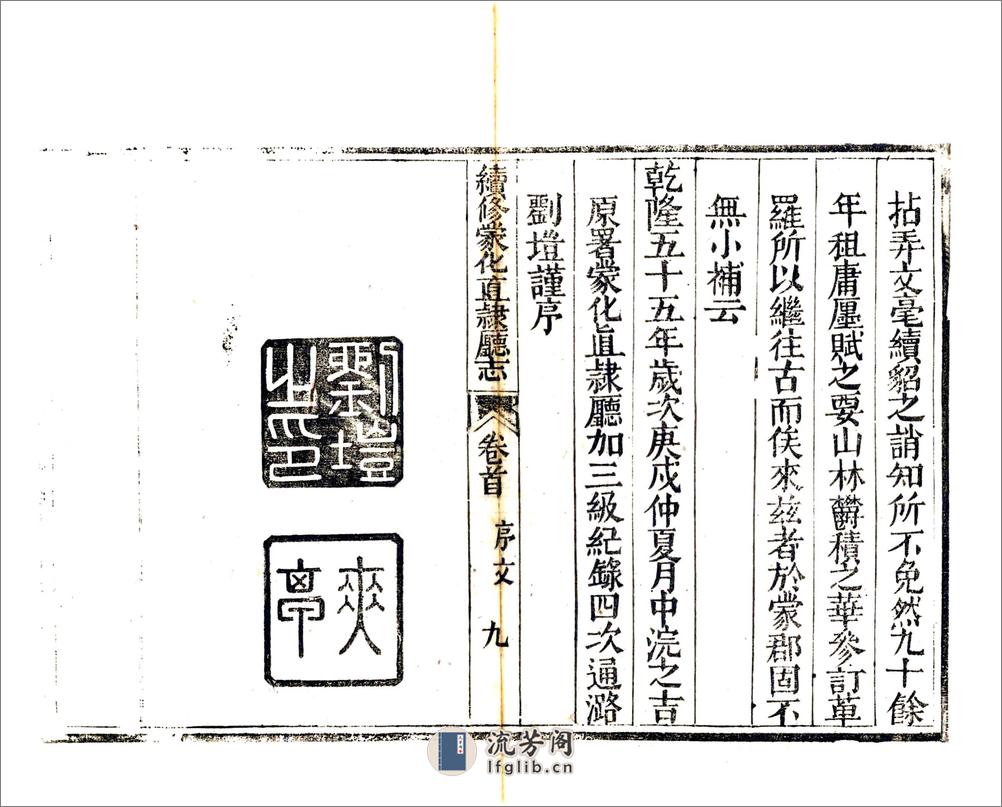 拈弄文毫續貂之誚知所不免然九十餘
年租庸厘賦之要山林欝積之華參訂革
羅所以繼往古而俟來茲者於蒙郡固不
無小補云
乾隆五十五年歲次庚戌仲夏月中浣之吉
原署蒙化直隸廳加三級紀錄四次通潞
劉塏謹序
續修蒙化直隸廳志 卷首 序文 九
劉塏之印
夾亭
流芳阁
lfglib.cn